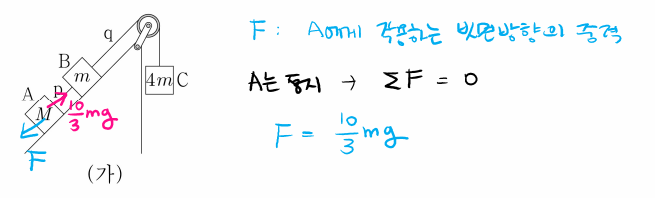 q
F : A에게 작용하는 빗면방향의 중력
B
m
4m C
A는 정지 → ΣF = 0
A p
M 10/3 mg
F = 10/3 mg
F
(가)